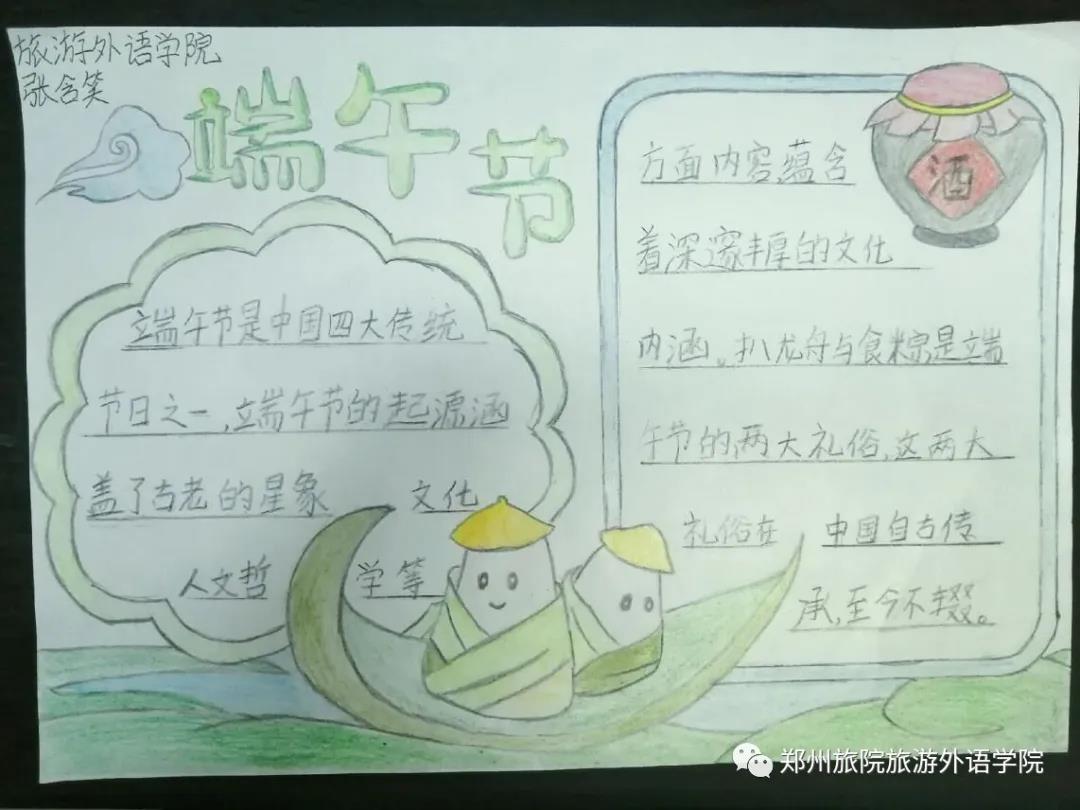 旅游外语学院
张含笑
端午节
端午节是中国四大传统
节日之一,端午节的起源涵
盖了古老的星象 文化
人文哲 学等
方面内容,蕴含
着深邃丰厚的文化
内涵。扒龙舟与食粽是端
午节的两大礼俗,这两大
礼俗在 中国自古传
承,至今不辍。
酒
郑州旅院旅游外语学院